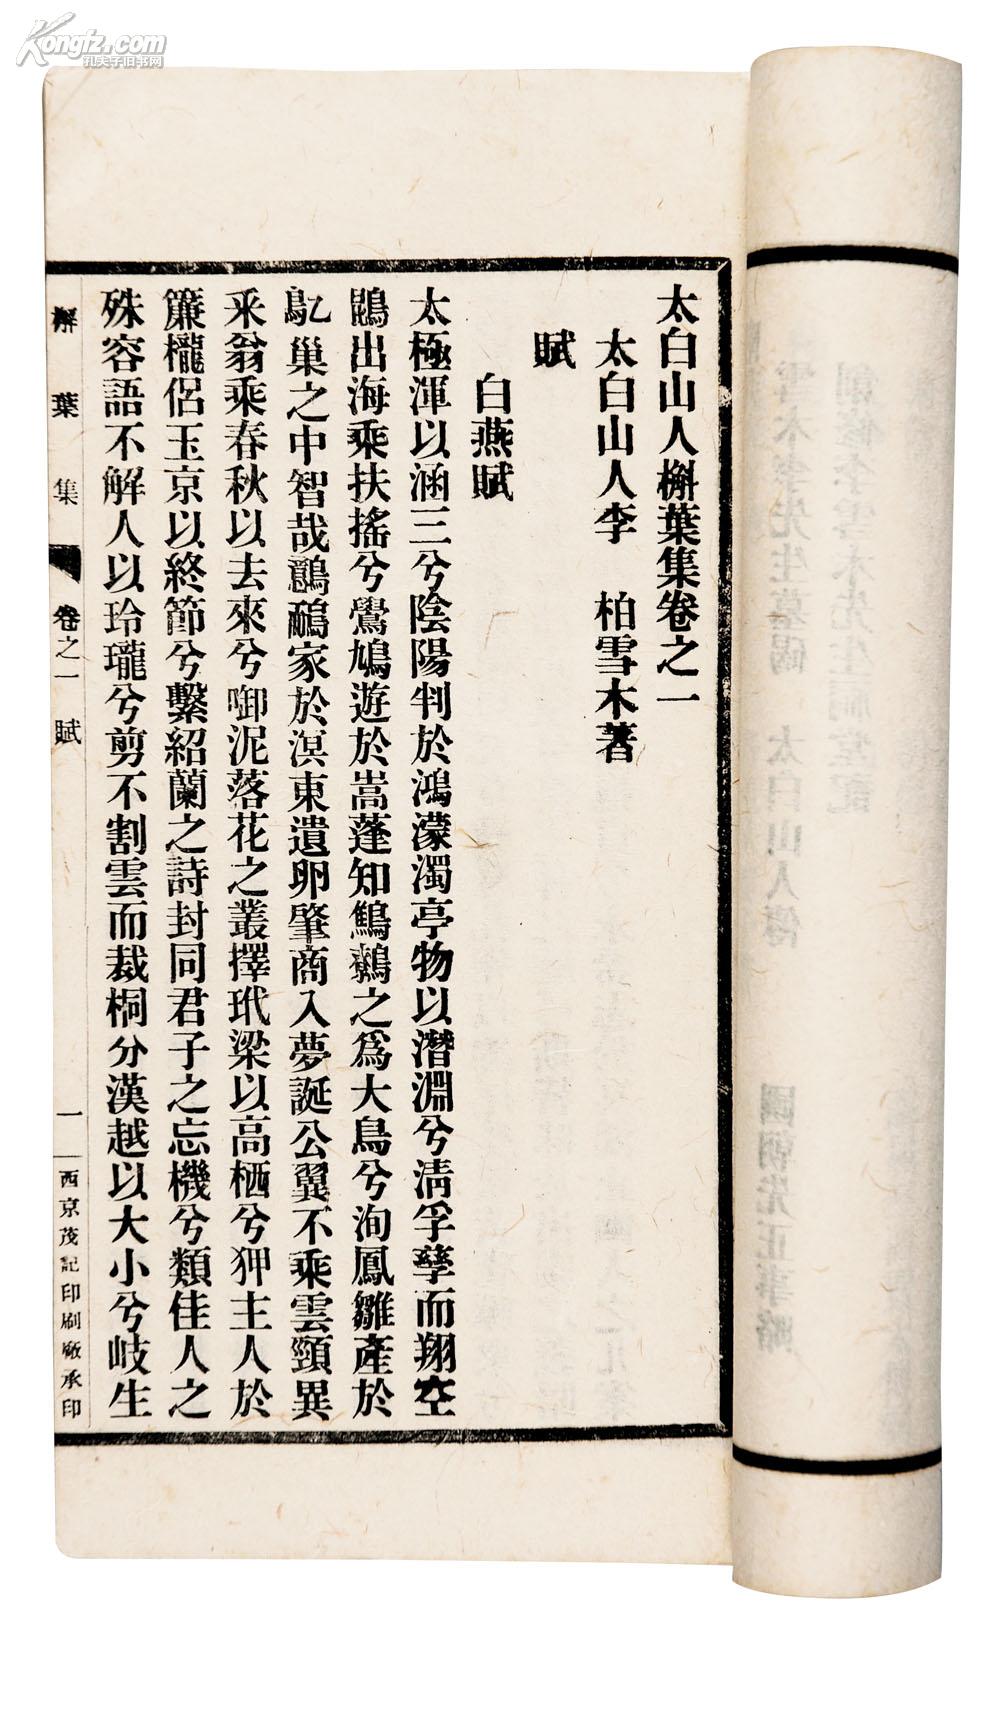 Kongfz.com
孔夫子旧书网
太白山人槲葉集卷之一
太白山人李　柏雪木著
賦
白燕賦
太極渾以涵三兮陰陽判於鴻濛濁亭物以潛淵兮淸孚孳而翔空
鵾出海乘扶搖兮鷽鳩遊於嵩蓬知鷦鷯之爲大鳥兮洵鳳雛產於
鳦巢之中智哉鷾鴯家於溟東遺卵肇商入夢誕公翼不乘雲頸異
釆翁乘春秋以去來兮啣泥落花之叢擇玳梁以高栖兮狎主人於
簾櫳侶玉京以終節兮繫紹蘭之詩封同君子之忘機兮類佳人之
殊容語不解人以玲瓏兮剪不割雲而裁桐分漢越以大小兮岐生
槲葉集　卷之一　賦　一　西京茂記印刷廠承印
雪木李先生墓碣　太白山人傳　國朝先正事略
創修李雪木先生祠堂記